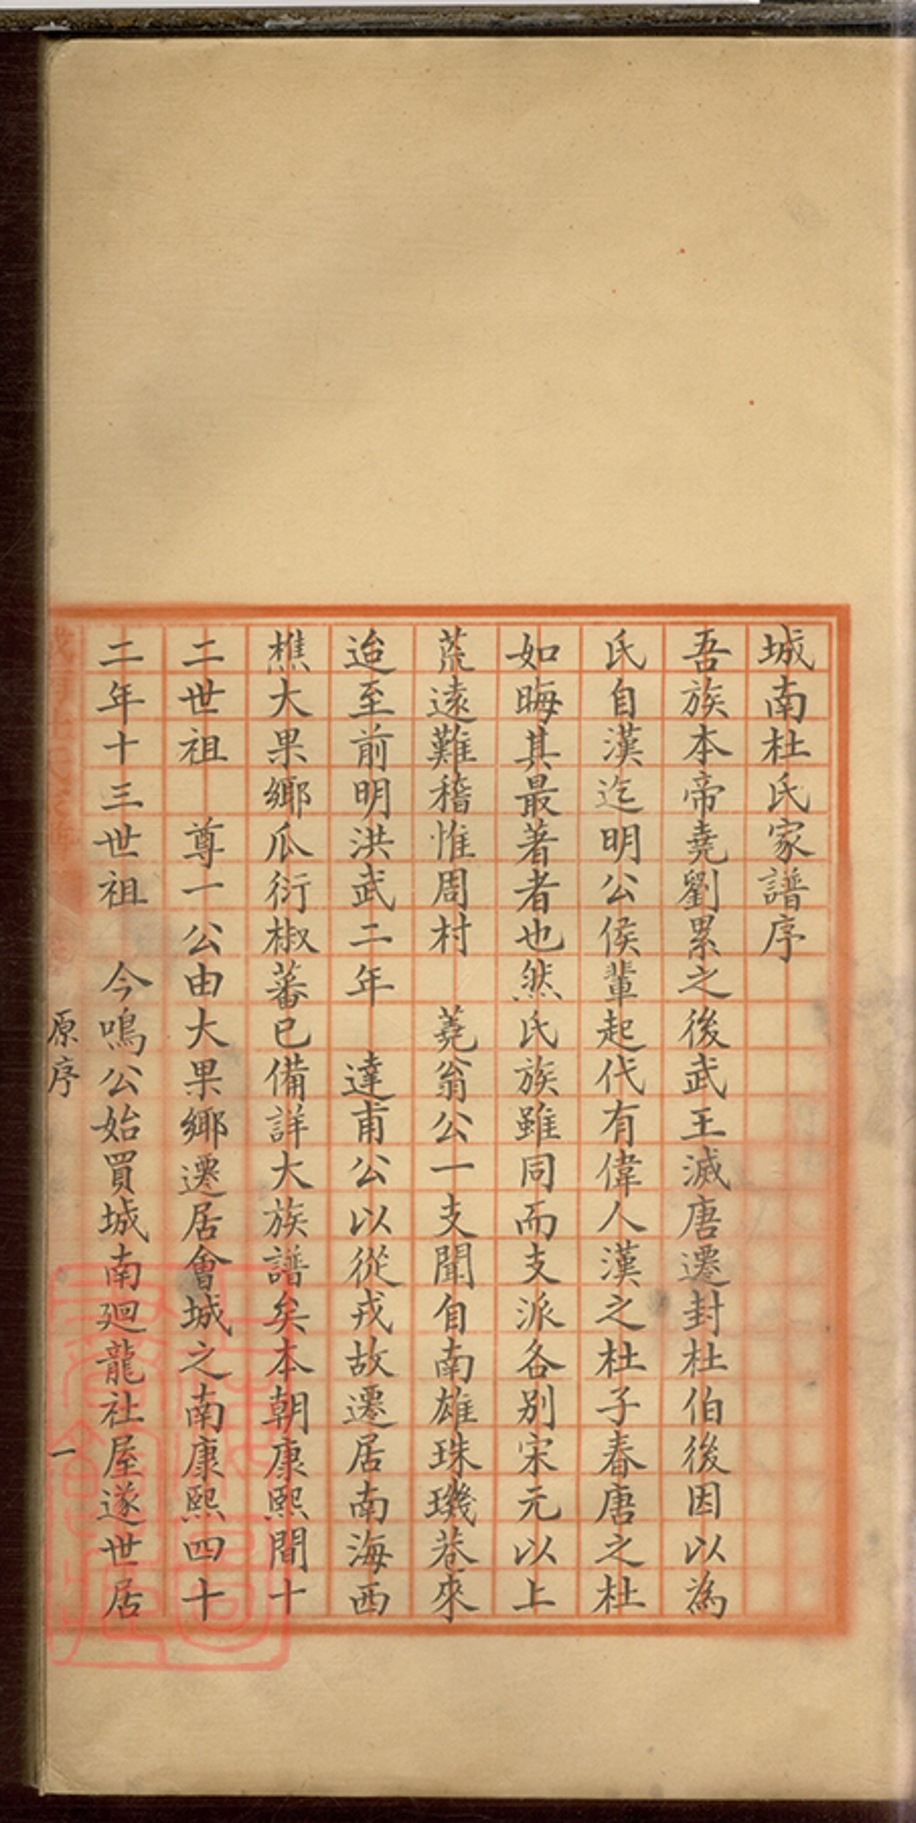 城南杜氏家譜序
吾族本帝堯劉累之後武王滅唐遷封杜伯後因以為
氏自漢迄明公侯輩起代有偉人漢之杜子春唐之杜
如晦其最著者也然氏族雖同而支派各別宋元以上
荒遠難稽惟周村　蕘翁公一支聞自南雄珠璣巷來
迨至前明洪武二年　達甫公以從戎故遷居南海西
樵大果鄉瓜衍椒蕃已備詳大族譜矣本朝康熙間十
二世祖　尊一公由大果鄉遷居會城之南康熙四十
二年十三世祖　今鳴公始買城南廻龍社屋遂世居
原序
一